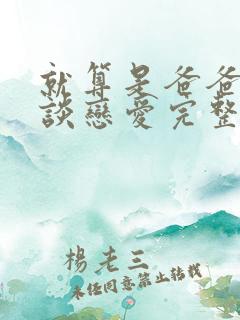 就算是爸爸
談戀愛完整
楊老三
未任同意禁止转载